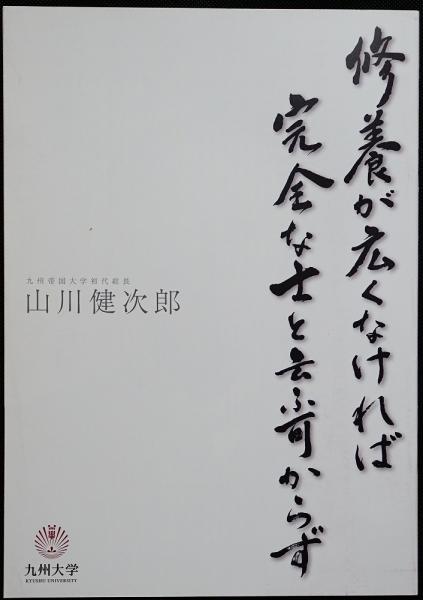 修養が広くなければ
完全な士と云ふ可からず
九州帝国大学初代総長
山川健次郎
九州大学
KYUSHU UNIVERSITY